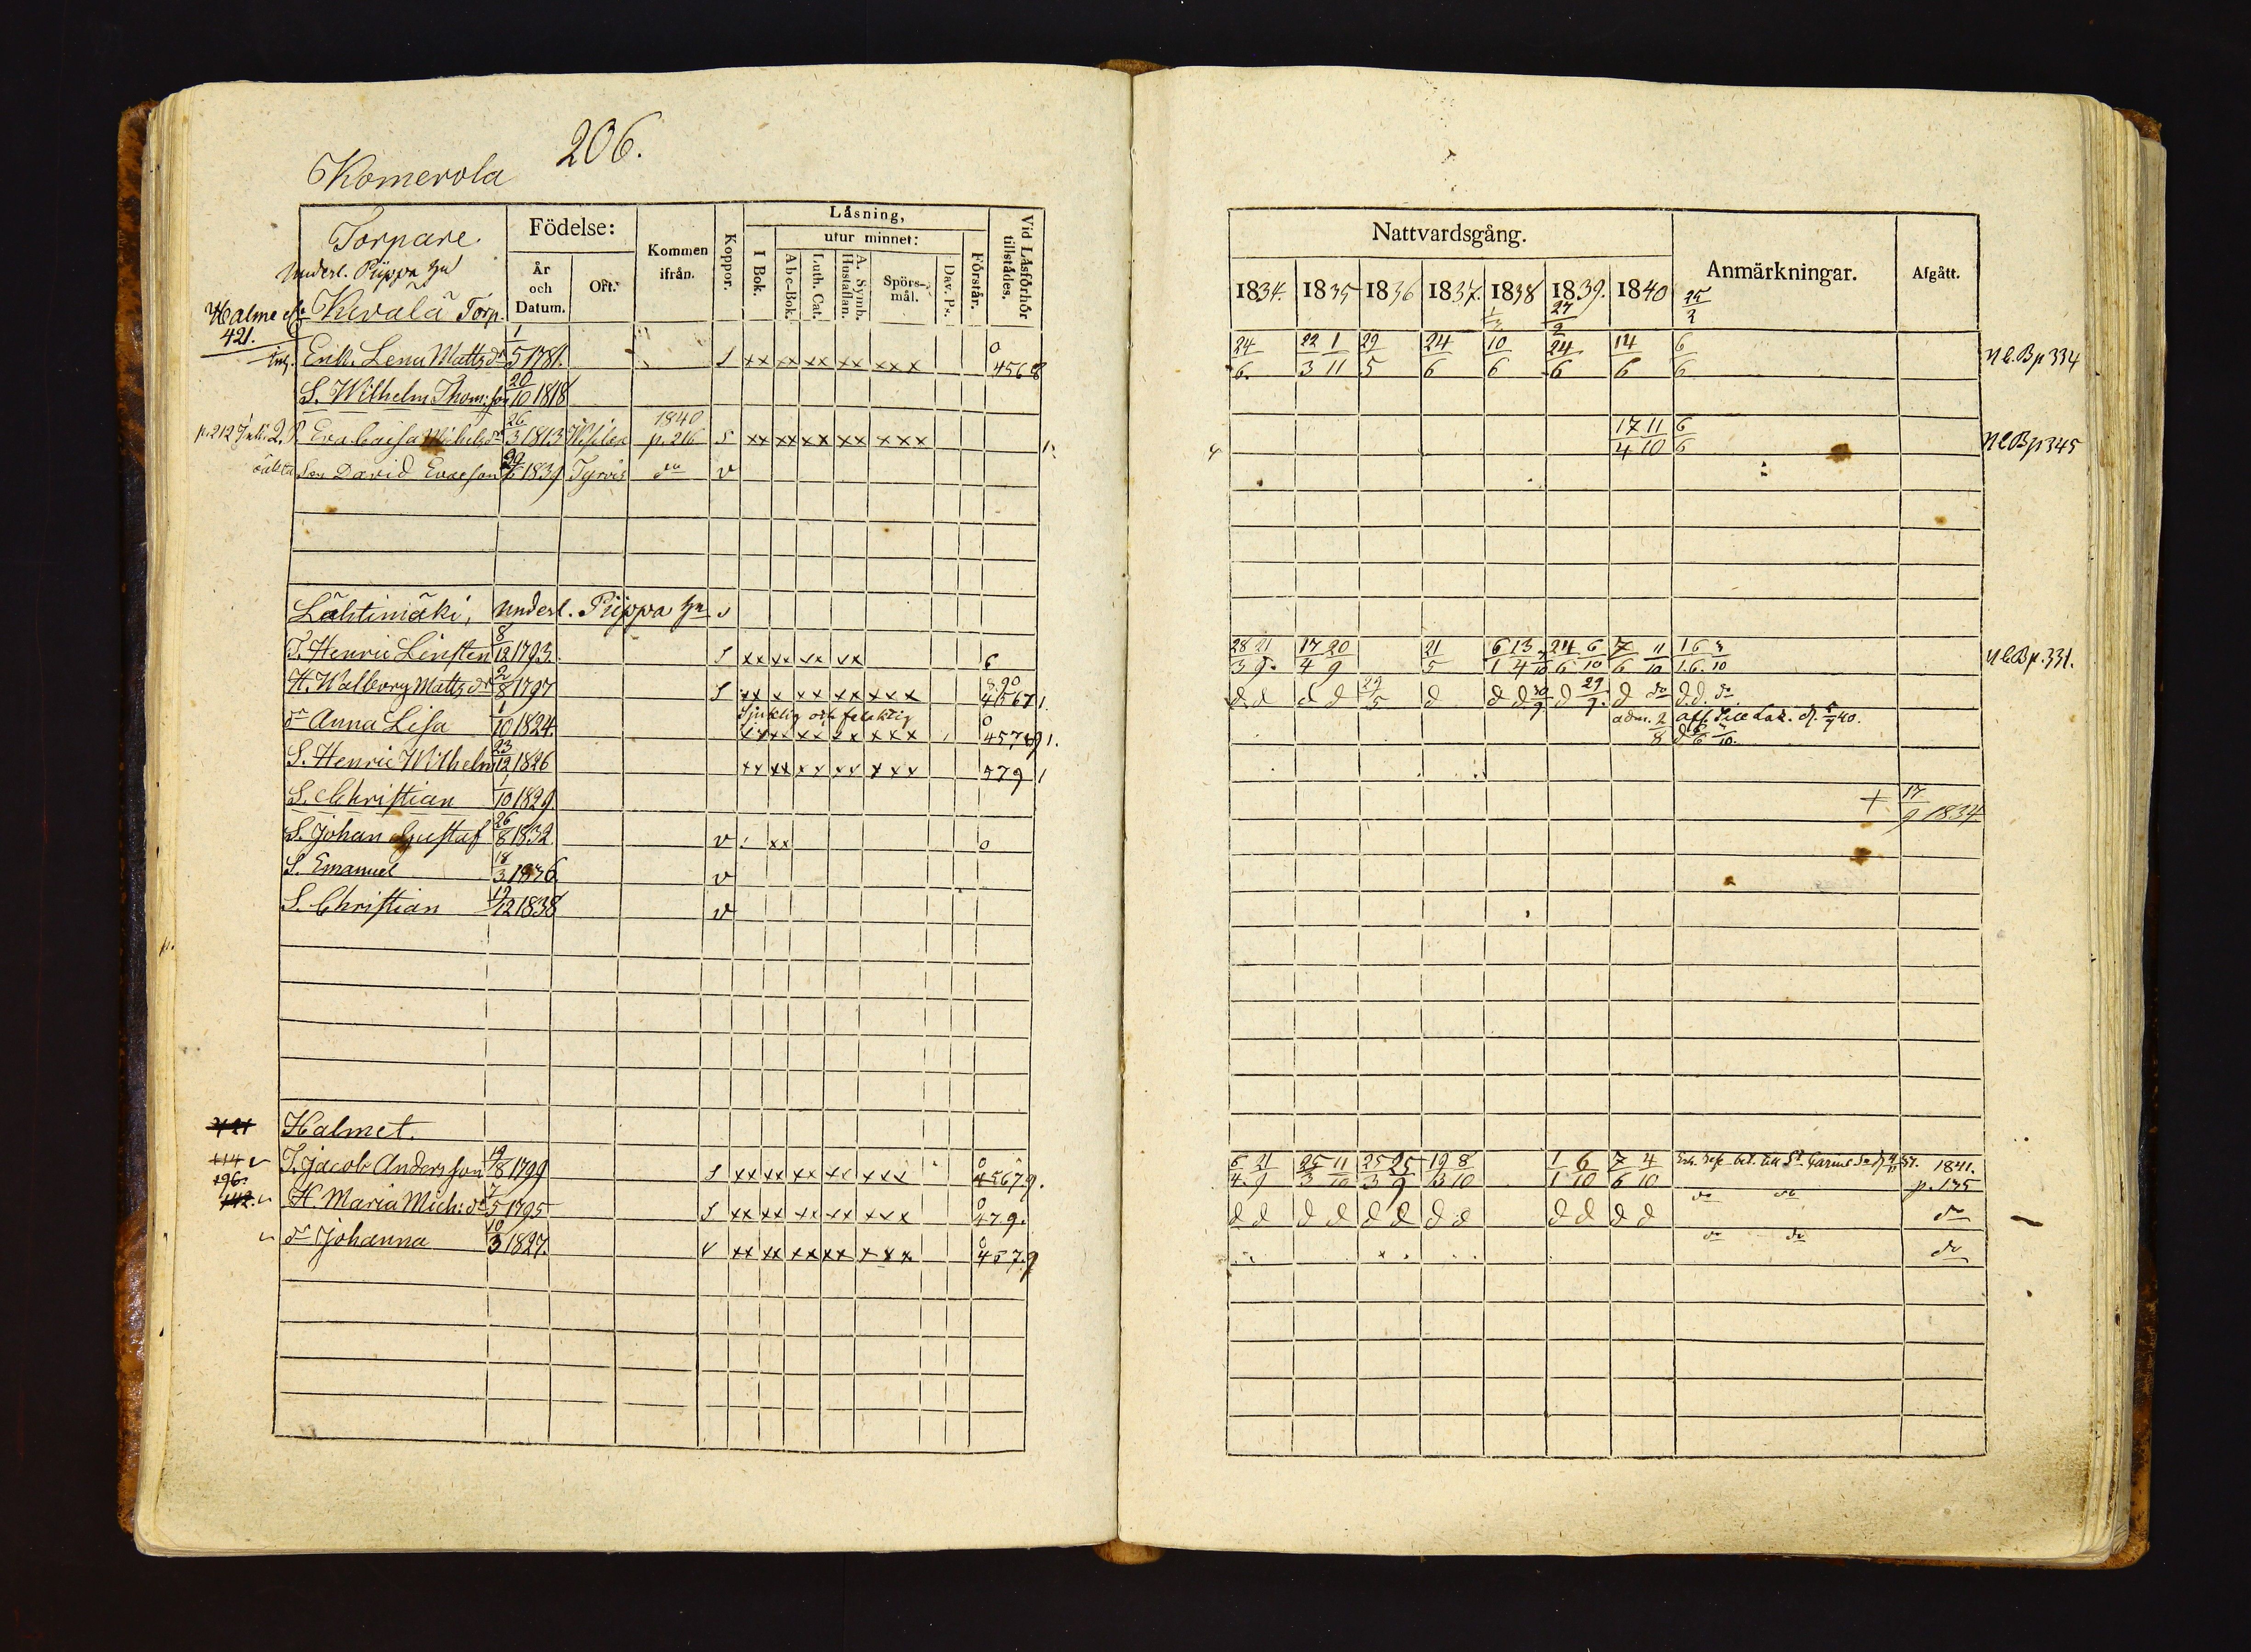 206.
Komerola
Torpare
underl. Piippa hn
Födelse:
År och Datum.
Ort.
Kommen ifrån.
Koppor.
Läsning,
I Bok.
utur minnet:
Abc-Bok.
Luth. Cat.
A. Symb. Hustaflan.
Spörsmål.
Dav. Ps.
Förstår.
Vid Läsförhör tillstädes.
Halme
421.
Kivälä Torp.
Enk. Lena Matts dr 1/5 1781. S xx xx xx xx xxx 0 4568
S. Wilhelm Thom: son 20/10 1818
p. 212 Eva Caisa Michels dr 26/3 1813 1840 p. 216 S xx xx xx xx xxx
Son David Evaeson 1839 Tyrvis do v
Lähtimäki, underl. Piippa hn
T. Henric Linsten 8/12 1793. S xx xx xx xx 6
H. Walborg Matts dr 2/8 1797 S xx x xx xx xxx
Sjuklig och
dr Anna Lisa 1/10 1824.
S. Henric Wilhelm 23/12 1826 xx xx xx xx xxx 479
S. Christian 1/10 1829.
S. Johan Gustaf 26/8 1832. v xx 0
S. Emanuel 18/3 1836. v
S. Christian 19/12 1838 v
421
Halmet.
114
196.
142.
T. Jacob Andersson 19/8 1799 S xx xx xx xx xxx 0 45679.
H. Maria Mich: dr 7/5 1795 S xx xx xx xx xxx 0 479.
dr Johanna 10/3 1827. v xx xx xx xx xxx 0 457.9
Nattvardsgång.
Anmärkningar.
Afgått.
1834. 1835 1836 1837. 1838 1839. 1840
27/2 25/2
24/6. 22/3 1/11 29/5 24/6 10/6 24/6 14/6 6/6 N C. B p 334
17/4 11/10 6/6 N C B p 345
28/3 21/9. 17/4 20/9 21/5 6/1 13/4 24/6 6/10 7/6 11/10 N C B p. 331.
d d d d 29/5 d d d d d do d. d. do
adm. 2/8
+ 17/9 1834
6/4 21/9 25/3 11/10 25/3 25/9 19/3 8/10 1/1 6/10 7/6 4/10 1841. p. 135
d d d d d d d d d d d d do do do
do do do